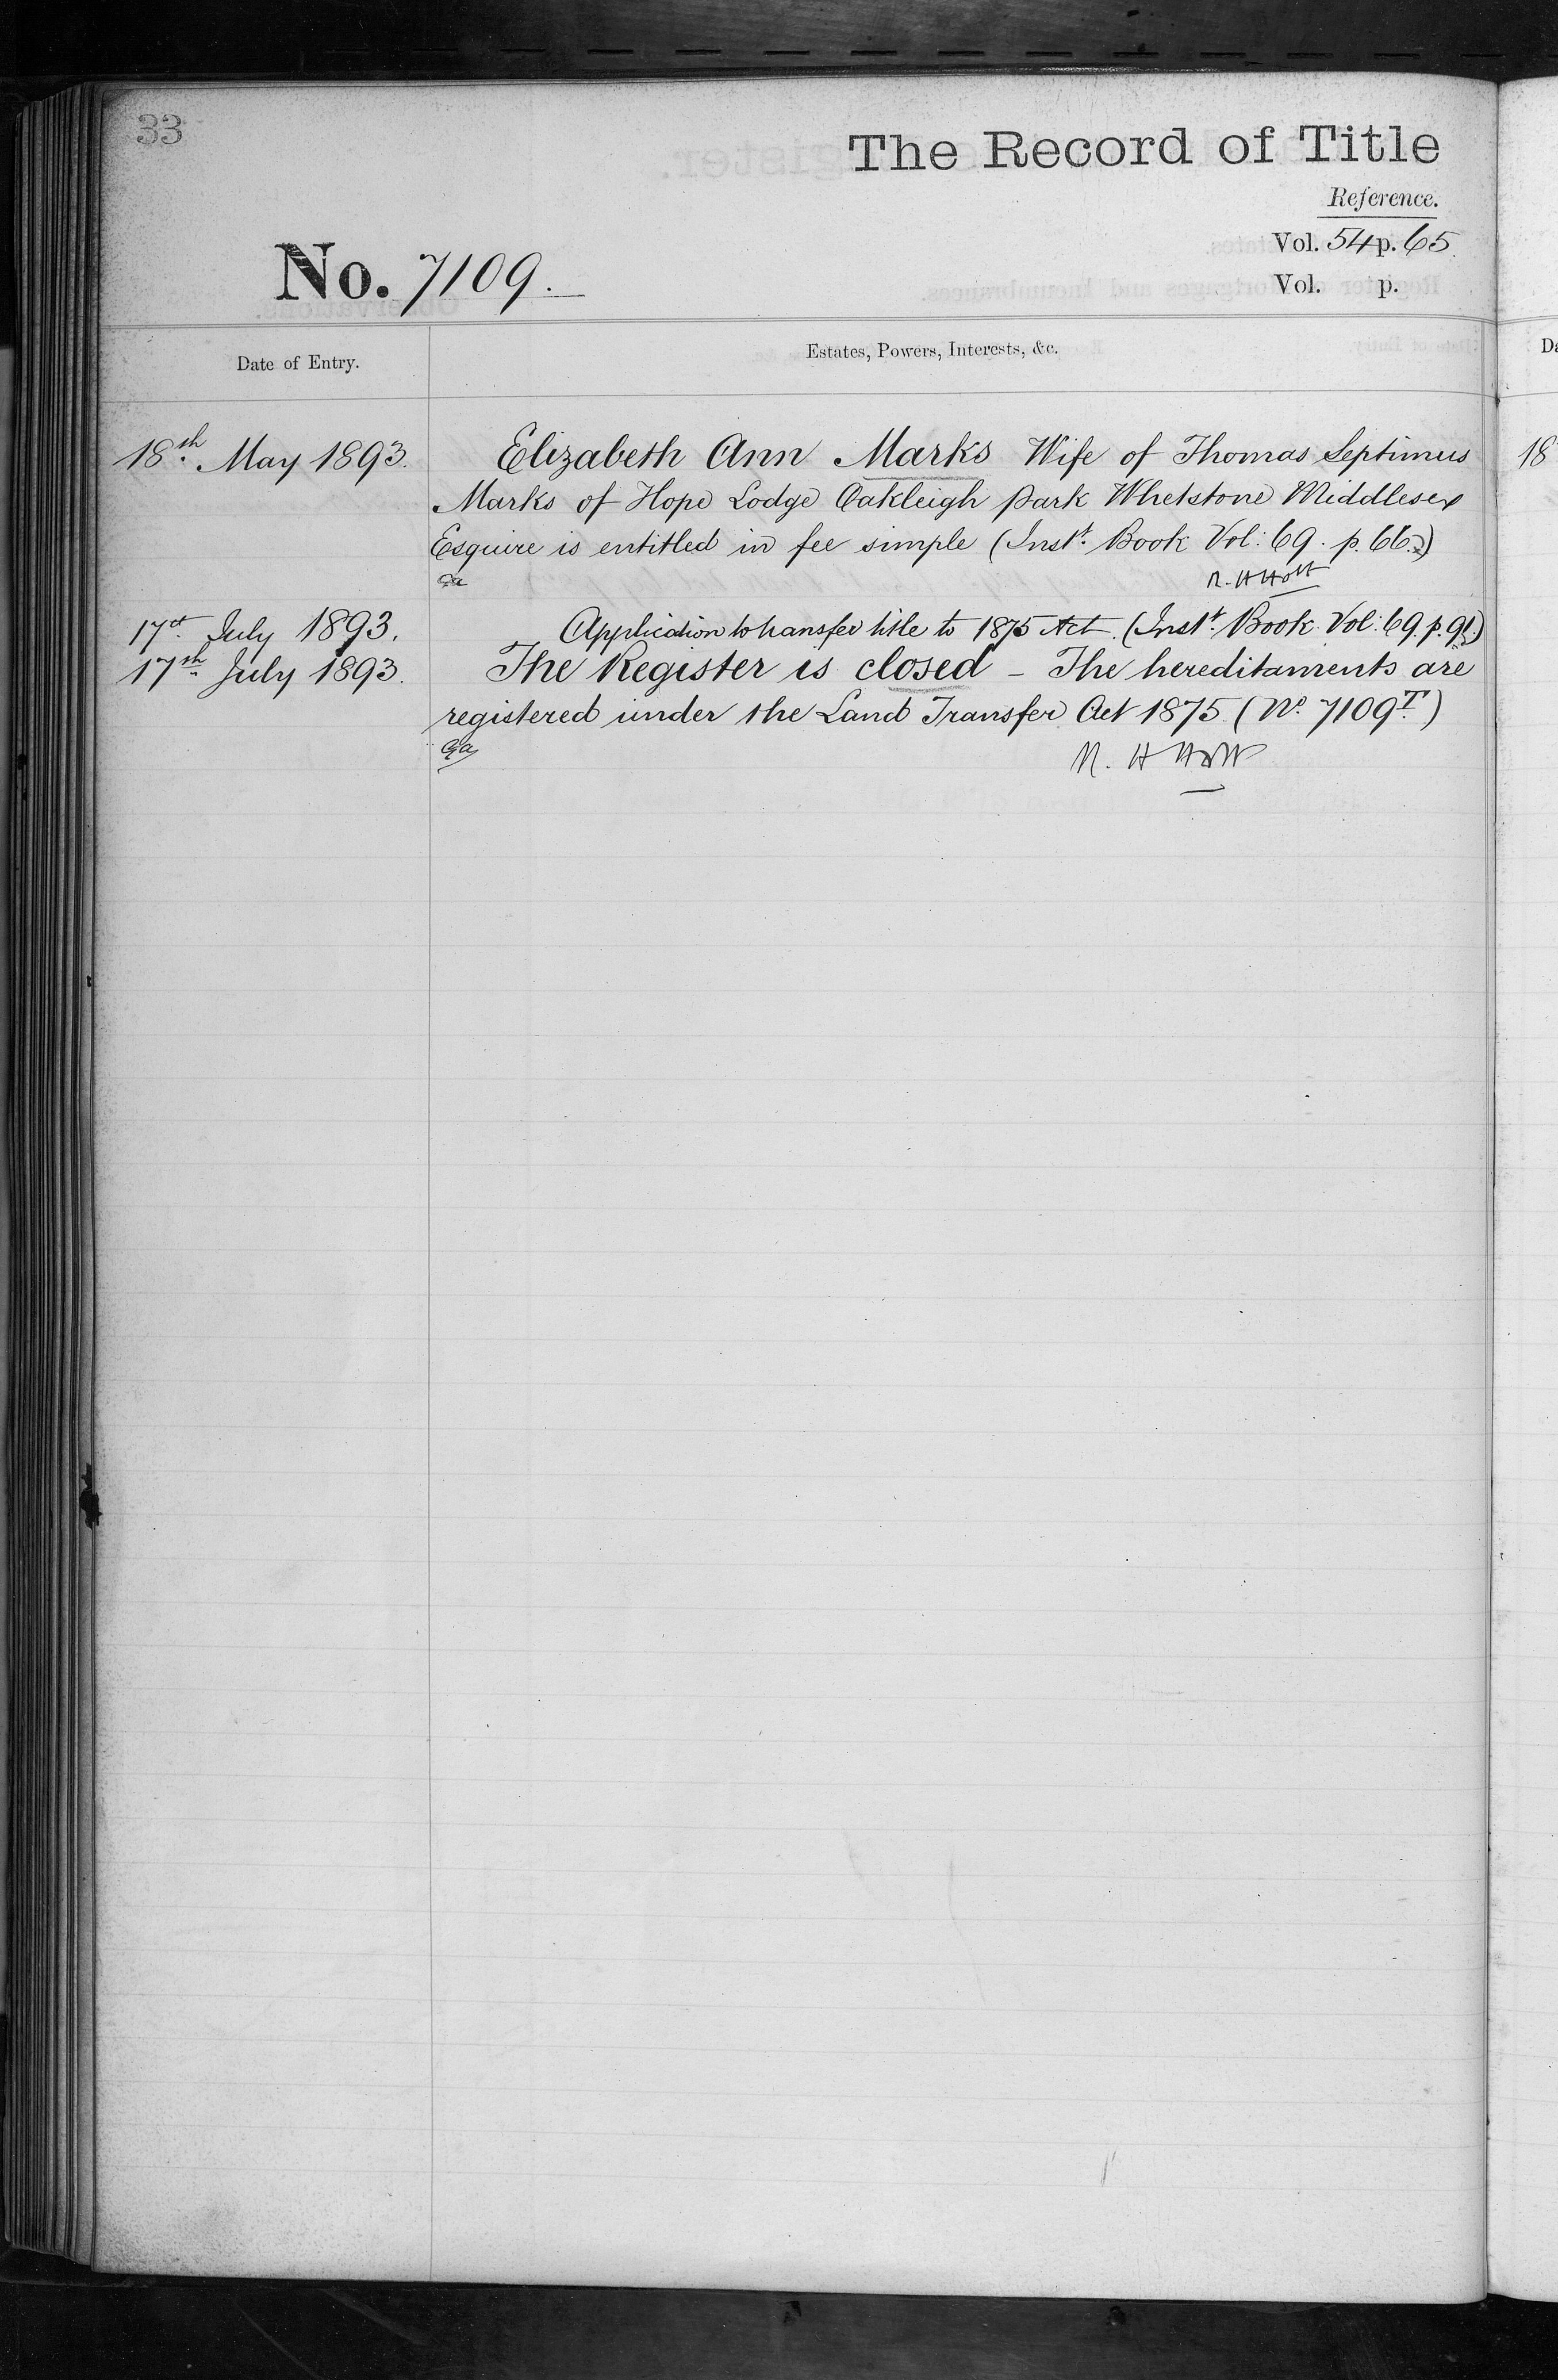 33
The Record of Title
Reference.
Vol. 54 p. 65.
No. 7109.
Vol. p.
Date of Entry.
Estates, Powers, Interests, &c.
18th May 1893.
Elizabeth Ann Marks Wife of Thomas Septimus
Marks of Hope Lodge Oakleigh Park Whetstone Middlesex
Esquire is entitled in fee simple (Inst. Book Vol: 69. p. 66.)
17th July 1893.
Application to transfer title to 1875 Act. (Inst. Book Vol: 69. p. 91.)
17th July 1893.
The Register is closed – The hereditaments are
registered under the Land Transfer Act 1875 (No. 7109T.)
18